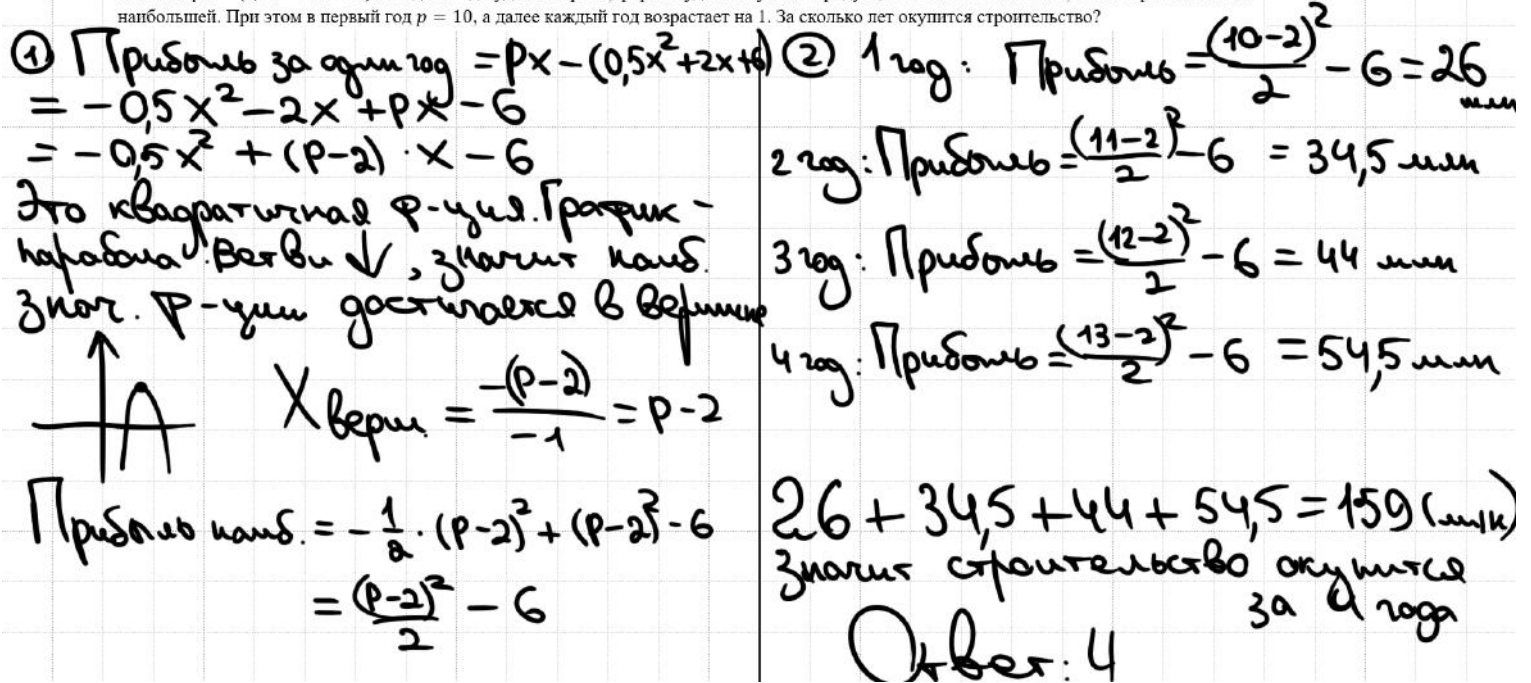 наибольшей. При этом в первый год p = 10, а далее каждый год возрастает на 1. За сколько лет окупится строительство?
① Прибыль за один год = px − (0,5x²+2x+6)
= −0,5x² − 2x + px − 6
= −0,5x² + (p−2) · x − 6
Это квадратичная ф-ция. График –
парабола. Ветви ↓, значит наиб.
знач. ф-ции достигается в вершине
X верш. = −(p−2)/−1 = p−2
Прибыль наиб. = −1/2 · (p−2)² + (p−2)² − 6
= (p−2)²/2 − 6
② 1 год: Прибыль = (10−2)²/2 − 6 = 26
млн
2 год: Прибыль = (11−2)²/2 − 6 = 34,5 млн
3 год: Прибыль = (12−2)²/2 − 6 = 44 млн
4 год: Прибыль = (13−2)²/2 − 6 = 54,5 млн
26 + 34,5 + 44 + 54,5 = 159 (млн)
Значит строительство окупится
за 4 года
Ответ: 4